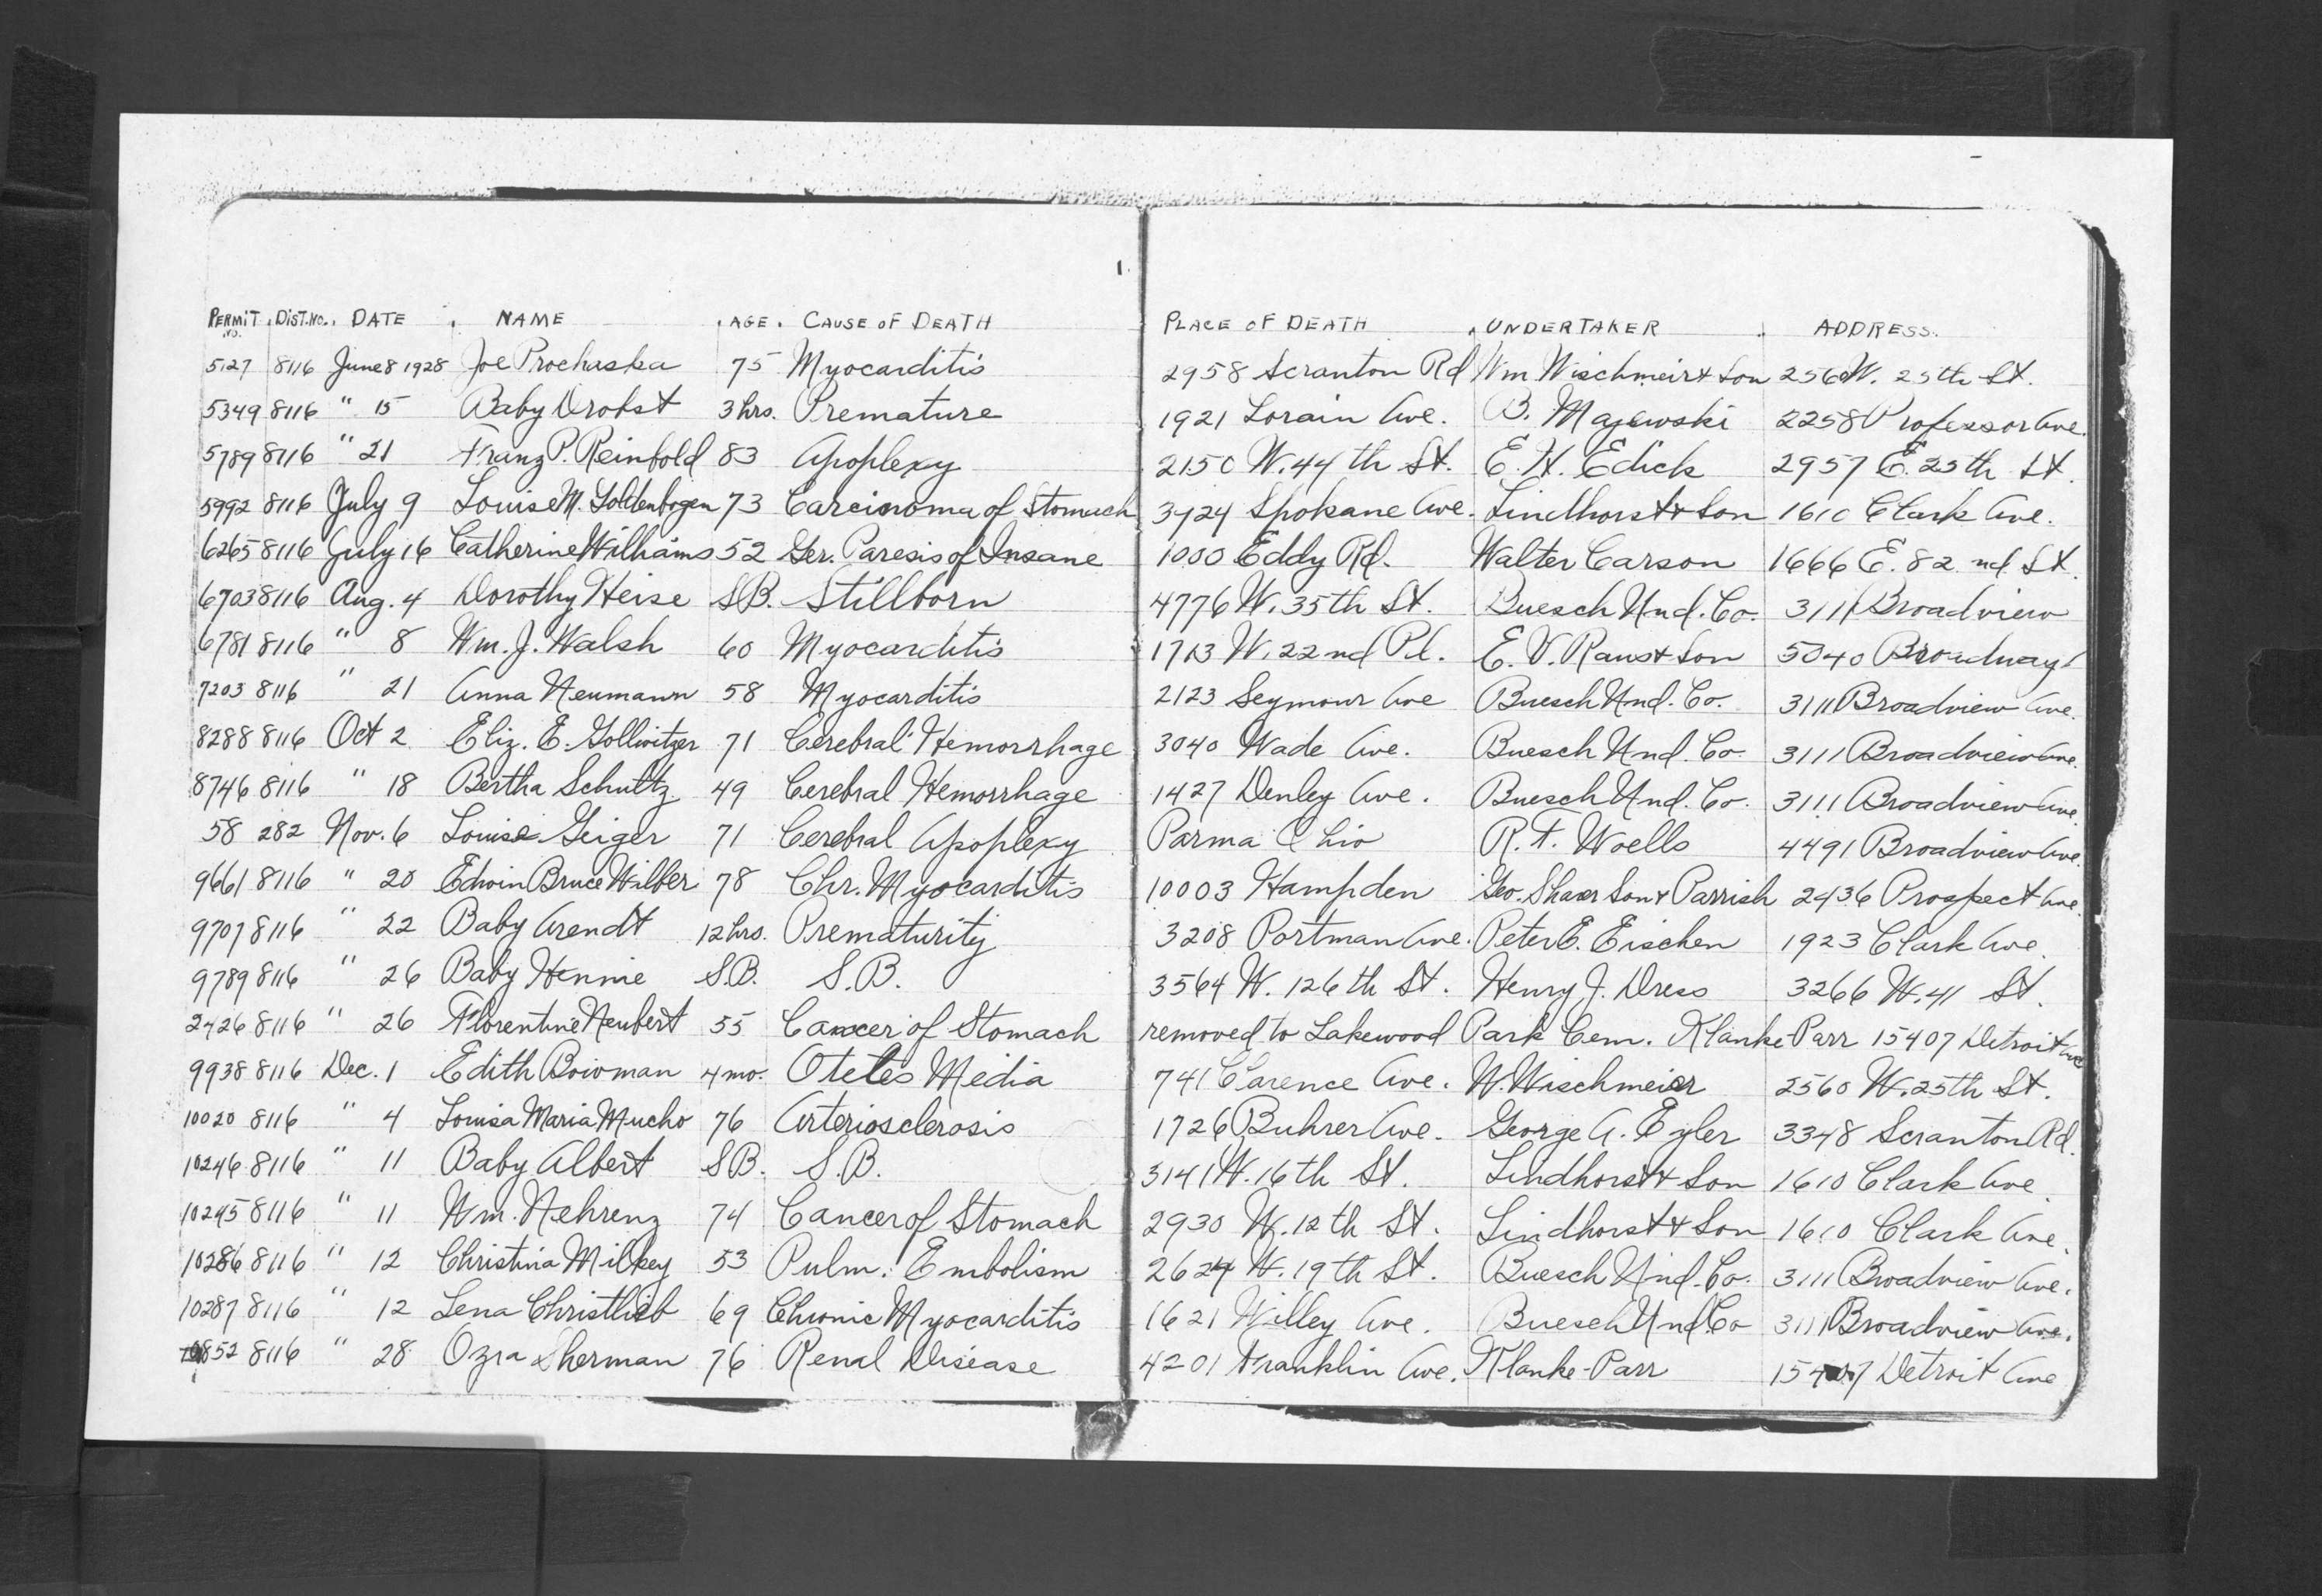 1.
PERMIT NO. DIST. NO. DATE NAME AGE CAUSE OF DEATH PLACE OF DEATH UNDERTAKER ADDRESS.
5127 8116 June 8 1928 Joe Prochaska 75 Myocarditis 2958 Scranton Rd Wm Wischmeir & Son 2560 W. 25th St.
5349 8116 " 15 Baby Drobst 3 hrs. Premature 1921 Lorain Ave. B. Majewski 2258 Professor Ave.
5789 8116 " 21 Franz P. Reinbold 83 Apoplexy 2150 W. 44th St. E. H. Edick 2957 E. 25th St.
5992 8116 July 9 Louise M. Goldenbogen 73 Carcinoma of Stomach 3924 Spokane Ave. Lindhorst & Son 1610 Clark Ave.
6265 8116 July 16 Catherine Williams 52 Ger. Paresis of Insane 1000 Eddy Rd. Walter Carson 1666 E. 82nd St.
6703 8116 Aug. 4 Dorothy Heise S.B. Stillborn 4776 W. 35th St. Buesch Und. Co. 3111 Broadview
6781 8116 " 8 Wm. J. Walsh 60 Myocarditis 1713 W. 22nd Pl. E. V. Raus & Son 5040 Broadway
7203 8116 " 21 Anna Neumann 58 Myocarditis 2123 Seymour Ave Buesch Und. Co. 3111 Broadview Ave.
8288 8116 Oct 2 Eliz. E. Gollwitzer 71 Cerebral Hemorrhage 3040 Wade Ave. Buesch Und. Co. 3111 Broadview Ave.
8746 8116 " 18 Bertha Schultz 49 Cerebral Hemorrhage 1427 Denley Ave. Buesch Und. Co. 3111 Broadview Ave.
58 282 Nov. 6 Louise Geiger 71 Cerebral Apoplexy Parma Ohio R. F. Woells 4491 Broadview Ave.
9661 8116 " 20 Edwin Bruce Wilber 78 Chr. Myocarditis 10003 Hampden Geo. Shaer Son & Parrish 2436 Prospect Ave.
9707 8116 " 22 Baby Arendt 12 hrs. Prematurity 3208 Portman Ave. Peter E. Eischen 1923 Clark Ave.
9789 8116 " 26 Baby Hennie S.B. S.B. 3564 W. 126th St. Henry J. Dress 3266 W. 41 St.
2426 8116 " 26 Florentine Neubert 55 Cancer of Stomach removed to Lakewood Park Cem. Klanke-Parr 15407 Detroit Ave
9938 8116 Dec. 1 Edith Bowman 4 mo. Otetes Media 741 Clarence Ave. W. Wischmeier 2560 W. 25th St.
10020 8116 " 4 Louisa Maria Mucho 76 Arteriosclerosis 1726 Buhrer Ave. George A. Ezler 3348 Scranton Rd.
10246 8116 " 11 Baby Albert S.B. S.B. 3141 W. 16th St. Lindhorst & Son 1610 Clark Ave.
10245 8116 " 11 Wm. Nehrenz 74 Cancer of Stomach 2930 W. 12th St. Lindhorst & Son 1610 Clark Ave.
10286 8116 " 12 Christina Milkey 53 Pulm. Embolism 2624 W. 19th St. Buesch Und. Co. 3111 Broadview Ave.
10287 8116 " 12 Lena Christlieb 69 Chronic Myocarditis 1621 Willey Ave. Buesch Und. Co 3111 Broadview Ave.
10852 8116 " 28 Ozra Sherman 76 Renal Disease 4201 Franklin Ave. Klanke-Parr 15407 Detroit Ave